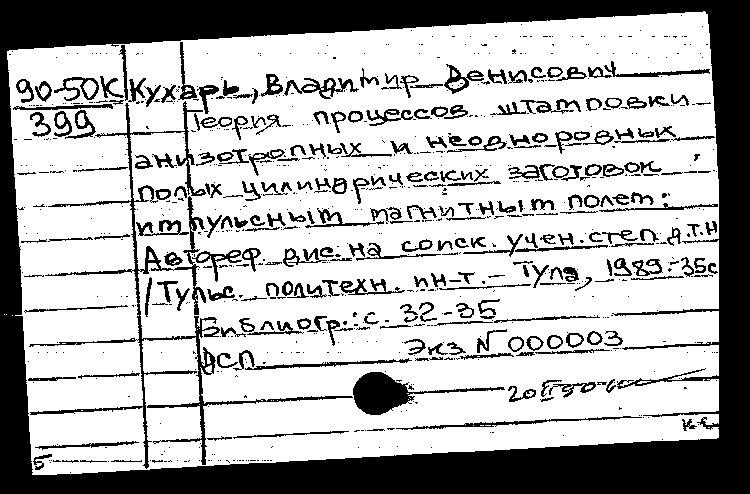 90-50К Кухарь, Владимир Денисович
399 Теория процессов штамповки
анизотропных и неоднородных
полых цилиндрических заготовок
импульсным магнитным полем:
Автореф. дис. на соиск. учен. степ. д.т.н
/ Тульс. политехн. ин-т. - Тула, 1989. - 35с
Библиогр.: с. 32-35
ДСП. Экз. № 000003
20 II 90
Б